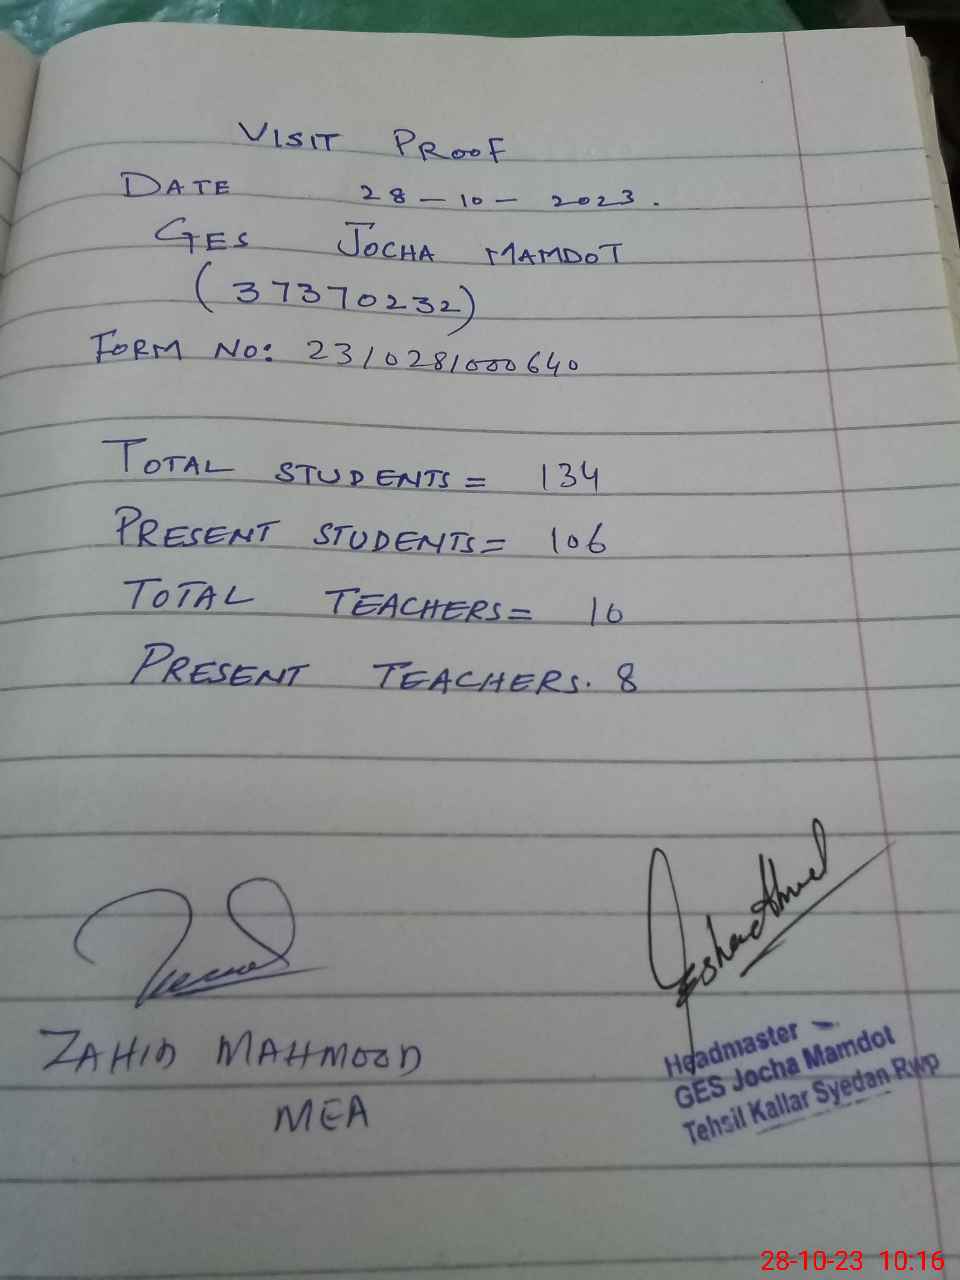 VISIT PROOF
DATE 28-10-2023.
GES JOCHA MAMDOT
(37370232)
FORM NO: 2310281000640
TOTAL STUDENTS= 134
PRESENT STUDENTS= 106
TOTAL TEACHERS= 10
PRESENT TEACHERS. 8
ZAHID MAHMOOD
MEA
Headmaster
GES Jocha Mamdot
Tehsil Kallar Syedan Rwp
28-10-23 10:16